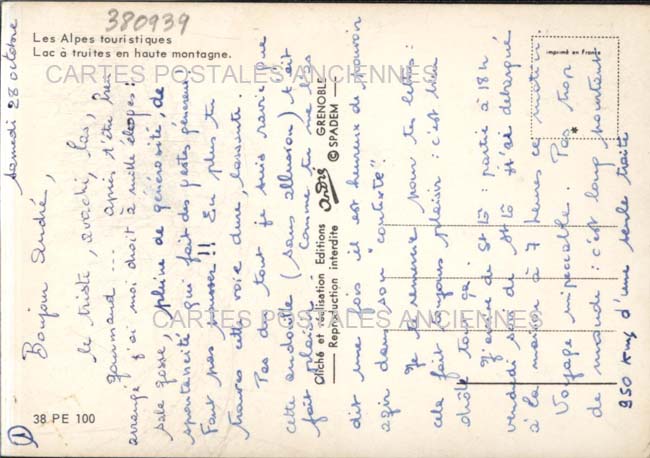 380939
Les Alpes touristiques
Lac à truites en haute montagne.
CARTES POSTALES ANCIENNES
imprimé en France
Samedi 28 octobre
Bonjour André,
le triste, avachi, las,
gourmand .... après t'être bien
arrangé j'ai moi droit à mille éloges :
sale gosse, pleine de générosité, de
spontanéité qui fait des gestes généreux
Faut pas pousser !! En plus tu
trouves cette voie dure, lassante.
Pas du tout je suis ravie que
cette andouille (sans allusion) t'ait
fait plaisir. Comme tu me l'as
dit une fois il est heureux de pouvoir
agir dans son "contexte".
Je te remercie pour tes lettres :
cela fait toujours plaisir : c'est bien
drôle tout ça.
J'arrive de St Lô : partie à 18 h
vendredi soir de St Lô j'ai débarqué
à la maison à 7 heures ce matin.
Voyage impeccable. Pas trop
de monde : c'est long pourtant
950 Kms d'une seule traite
Cliché et réalisation Editions André GRENOBLE
Reproduction interdite © SPADEM
CARTES POSTALES ANCIENNES
38 PE 100
1